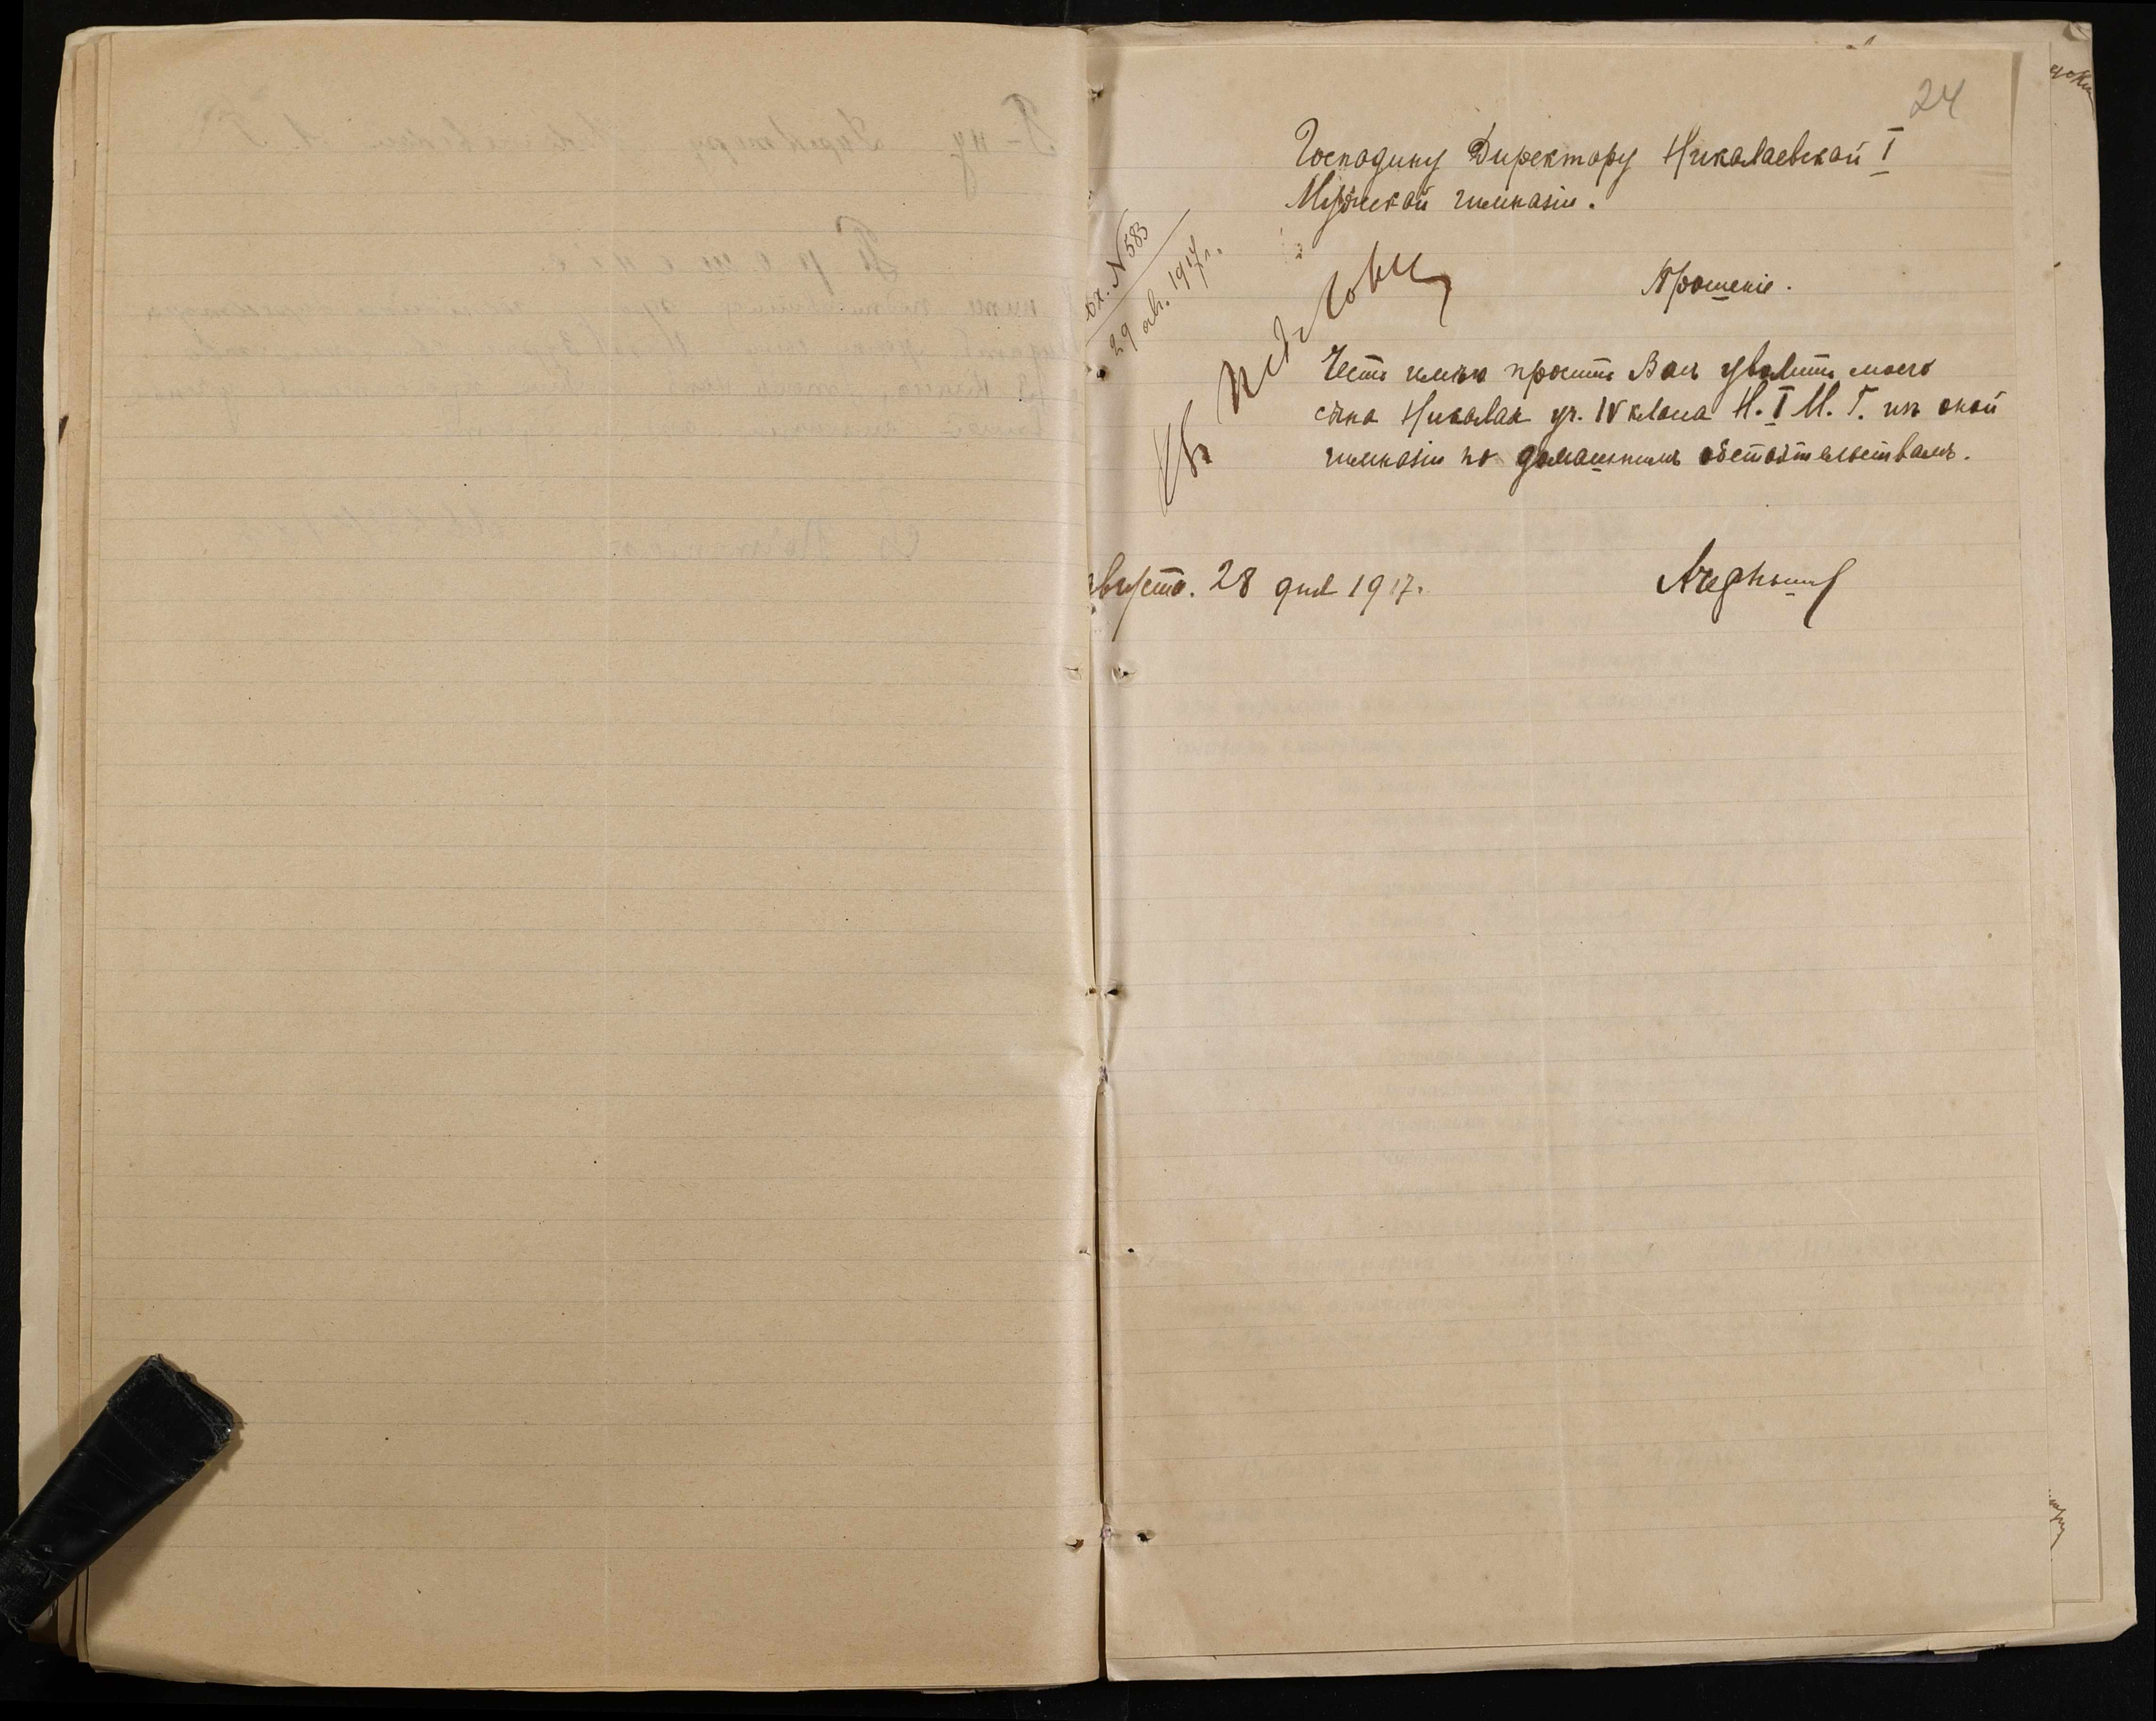 24
Господину Директору Николаевской I
Мужской гимназіи.
вх. N 583
29 авг. 1917 г.
Прошеніе.
Честь имѣю просить Васъ уволить моего
сына Николая уч. IV класа Н. I М. Г. изъ оной
гимназіи по домашнимъ обстоятельствамъ.
Августа. 28 дня 1917.